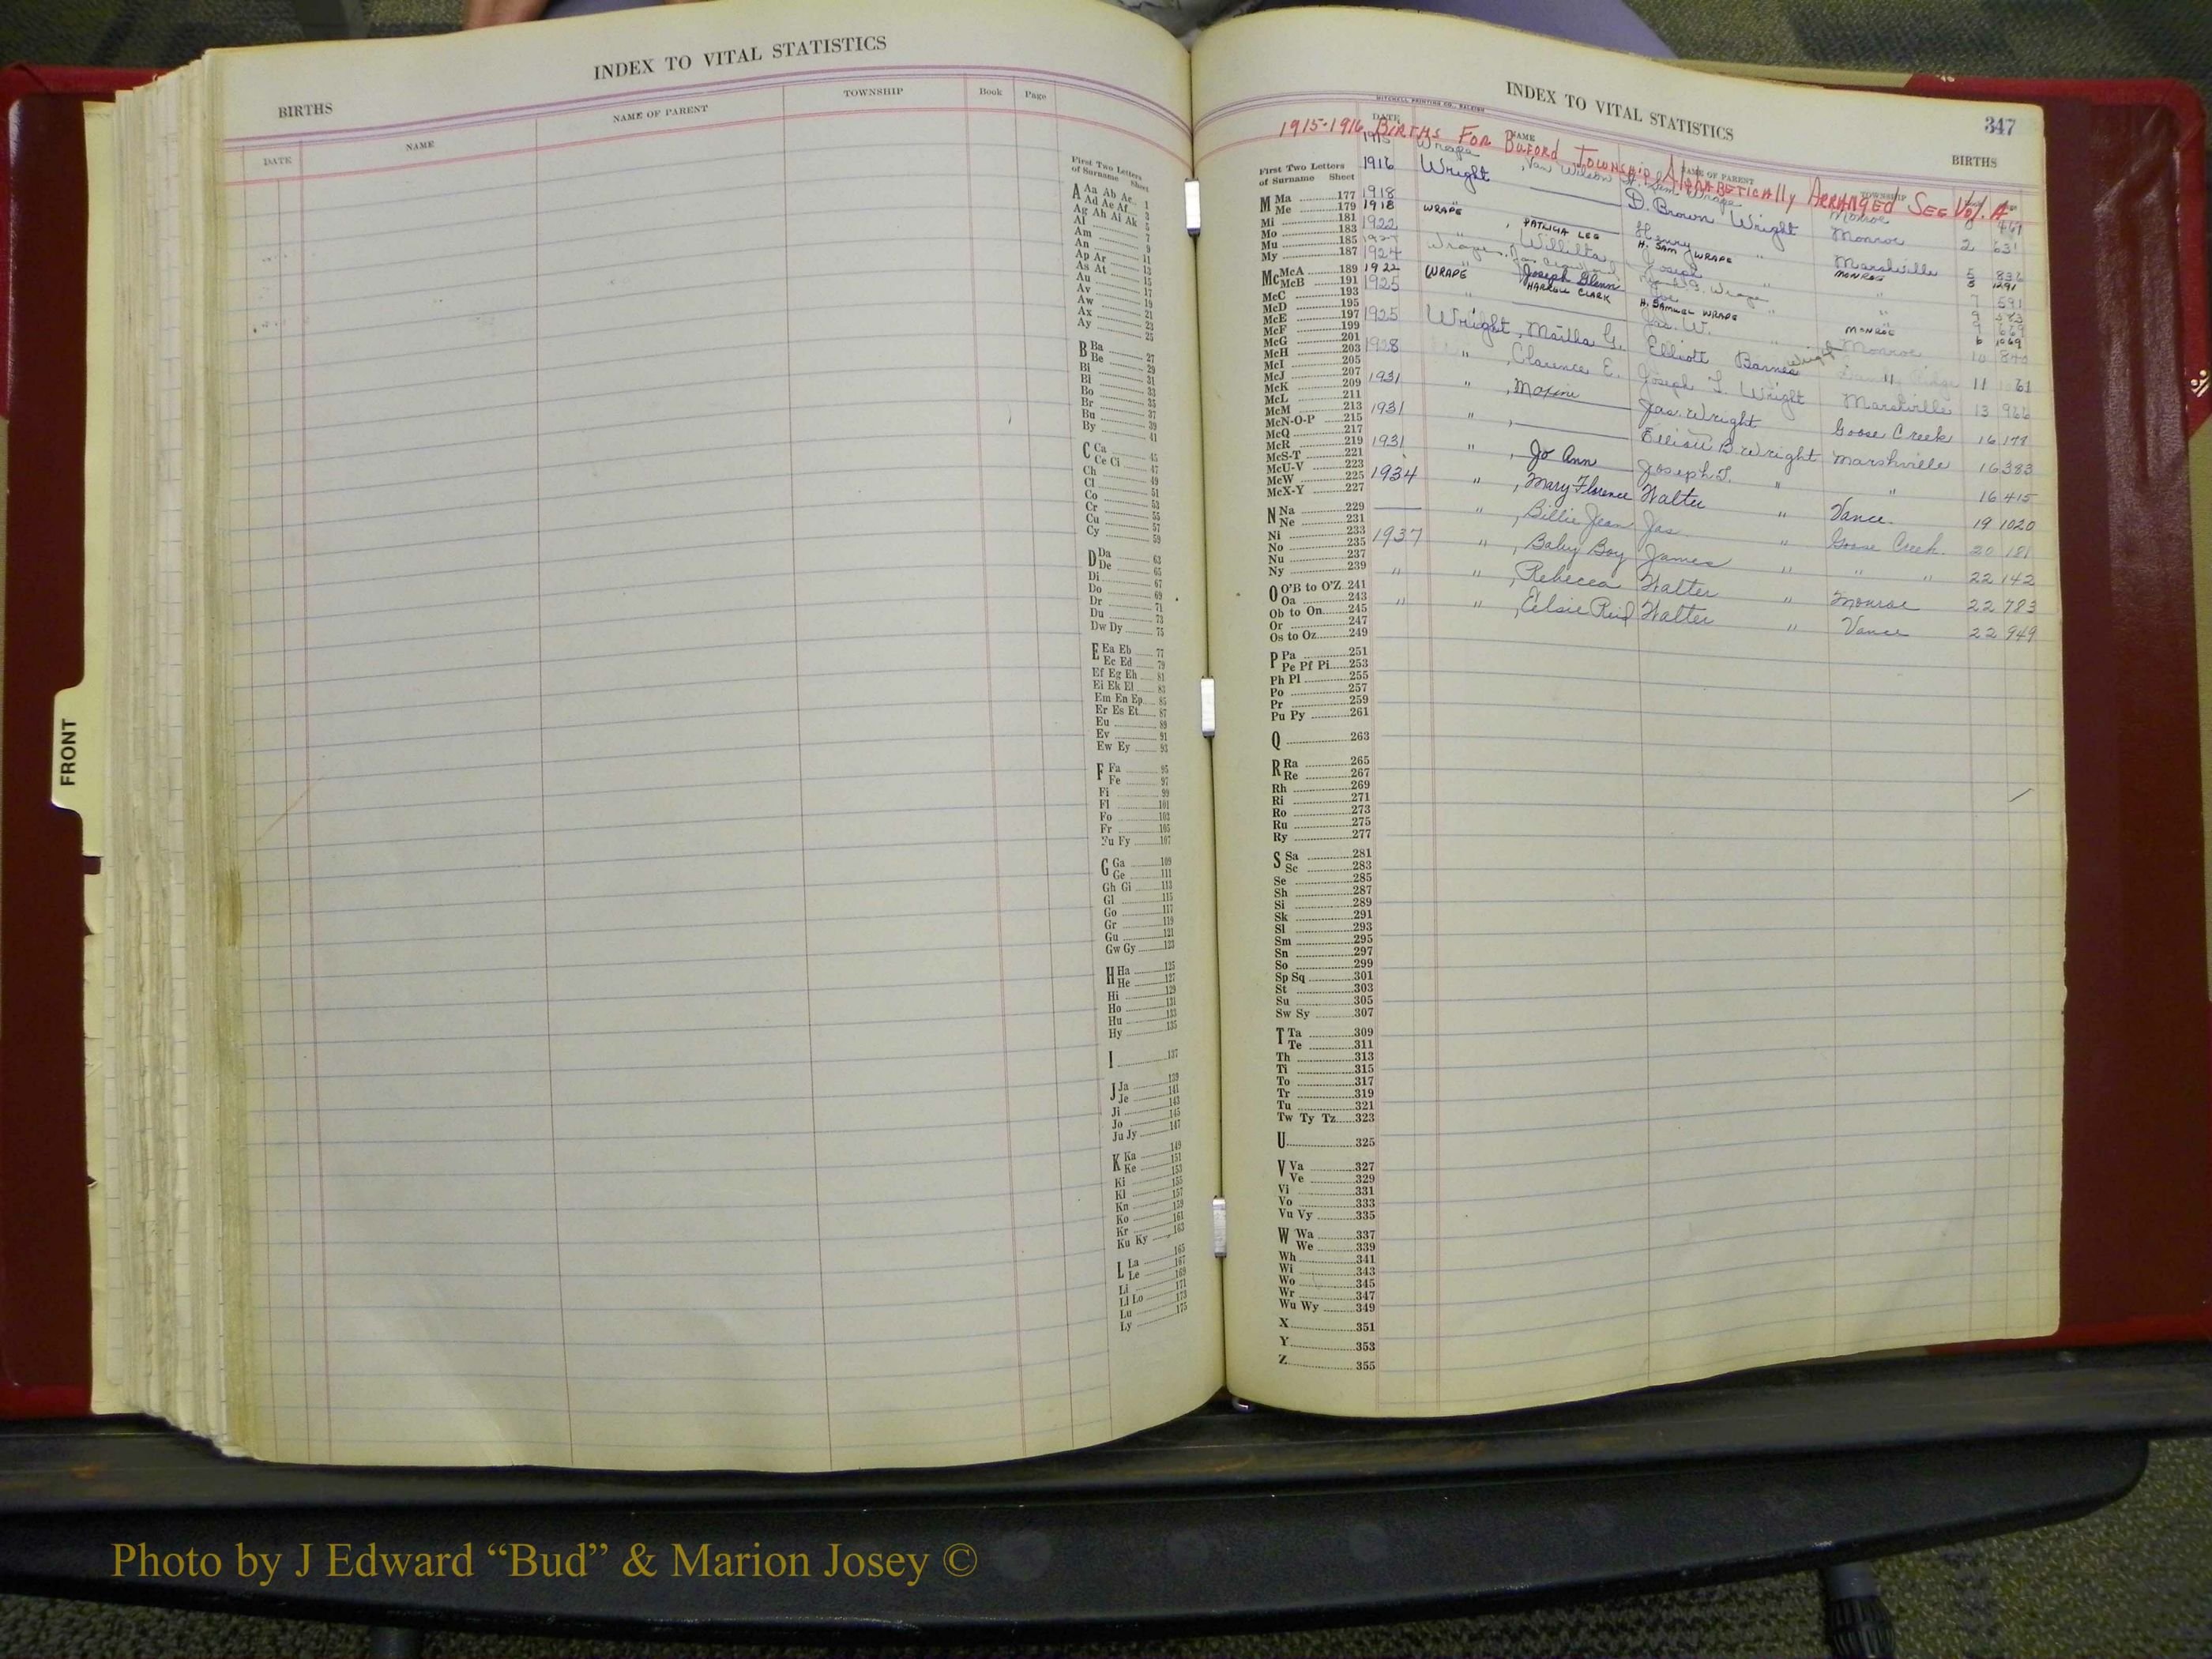 INDEX TO VITAL STATISTICS
BIRTHS
DATE NAME NAME OF PARENT TOWNSHIP Book Page
First Two Letters
of Surname Sheet
A Aa Ab Ac 1
Ad Ae Af 3
Ag Ah Ai Ak 5
Al 7
Am 9
An 11
Ap Ar 13
As At 15
Au 17
Av 19
Aw 21
Ax 23
Ay 25
B Ba 27
Be 29
Bi 31
Bl 33
Bo 35
Br 37
Bu 39
By 41
C Ca 45
Ce Ci 47
Ch 49
Cl 51
Co 53
Cr 55
Cu 57
Cy 59
D Da 63
De 65
Di 67
Do 69
Dr 71
Du 73
Dw Dy 75
E Ea Eb 77
Ec Ed 79
Ef Eg Eh 81
Ei Ek El 83
Em En Ep 85
Er Es Et 87
Eu 89
Ev 91
Ew Ey 93
F Fa 95
Fe 97
Fi 99
Fl 101
Fo 103
Fr 105
Fu Fy 107
G Ga 109
Ge 111
Gh Gi 113
Gl 115
Go 117
Gr 119
Gu 121
Gw Gy 123
H Ha 125
He 127
Hi 129
Ho 131
Hu 133
Hy 135
I 137
J Ja 139
Je 141
Ji 143
Jo 145
Ju Jy 147
K Ka 149
Ke 151
Ki 153
Kl 155
Kn 157
Ko 159
Kr 161
Ku Ky 163
L La 165
Le 167
Li 169
Ll Lo 171
Lu 173
Ly 175
FRONT
INDEX TO VITAL STATISTICS 347
MITCHELL PRINTING CO., RALEIGH
BIRTHS
DATE NAME NAME OF PARENT TOWNSHIP
1915-1916 BIRTHS FOR BUFORD TOWNSHIP ALPHABETICALLY ARRANGED SEE Vol. A
First Two Letters
of Surname Sheet
M Ma 177
Me 179
Mi 181
Mo 183
Mu 185
My 187
Mc McA 189
McB 191
McC 193
McD 195
McE 197
McF 199
McG 201
McH 203
McI 205
McJ 207
McK 209
McL 211
McM 213
McN-O-P 215
McQ 217
McR 219
McS-T 221
McU-V 223
McW 225
McX-Y 227
N Na 229
Ne 231
Ni 233
No 235
Nu 237
Ny 239
O O'B to O'Z 241
Oa 243
Ob to On 245
Or 247
Os to Oz 249
P Pa 251
Pe Pf Pi 253
Ph Pl 255
Po 257
Pr 259
Pu Py 261
Q 263
R Ra 265
Re 267
Rh 269
Ri 271
Ro 273
Ru 275
Ry 277
S Sa 281
Sc 283
Se 285
Sh 287
Si 289
Sk 291
Sl 293
Sm 295
Sn 297
So 299
Sp Sq 301
St 303
Su 305
Sw Sy 307
T Ta 309
Te 311
Th 313
Ti 315
To 317
Tr 319
Tu 321
Tw Ty Tz 323
U 325
V Va 327
Ve 329
Vi 331
Vo 333
Vu Vy 335
W Wa 337
We 339
Wh 341
Wi 343
Wo 345
Wr 347
Wu Wy 349
X 351
Y 353
Z 355
1915 Wrape, Van Wilson H. Sam Wrape Monroe 461
1916 Wright D. Brown Wright Monroe 2 631
1918 " Henry " Marshville 5 836
1918 WRAPE, PATRICIA LEE H. SAM WRAPE MONROE 5 1291
1922 " Willilta Joseph " " 7 591
Wrape 9 583
1924 " Joseph Glenn Joe " " 9 669
1922 WRAPE HARKLE CLARK H. SAMUEL WRAPE MONROE 6 1069
1925 " Jas. W. Monroe 10 840
1925 Wright, Martha G. Elliott Barnes Wright " 11 61
1928 ", Clarence E. Joseph T. Wright Marshville 13 966
1931 ", Maxine Jas. Wright Goose Creek 16 178
1931 ", Elliott B. Wright Marshville 16 383
1931 ", Jo Ann Joseph T. " " 16 415
1934 ", Mary Florence Walter " Vance 19 1020
", Billie Jean Jas " Goose Creek 20 181
1937 ", Baby Boy James " " " 22 142
" ", Rebecca Walter " Monroe 22 783
" ", Elsie Reid Walter " Vance 22 949
Photo by J Edward “Bud” & Marion Josey ©